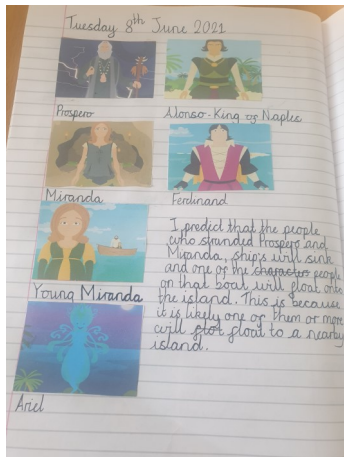 Tuesday 8th June 2021
Prospero
Alonso-King of Naples
Miranda
Ferdinand
Young Miranda
Ariel
I predict that the people
who stranded Prospero and
Miranda, ship's will sink
and one of the characters people
on that boat will float onto
the island. This is because
it is likely one of them or more
will flot float to a nearby
island.